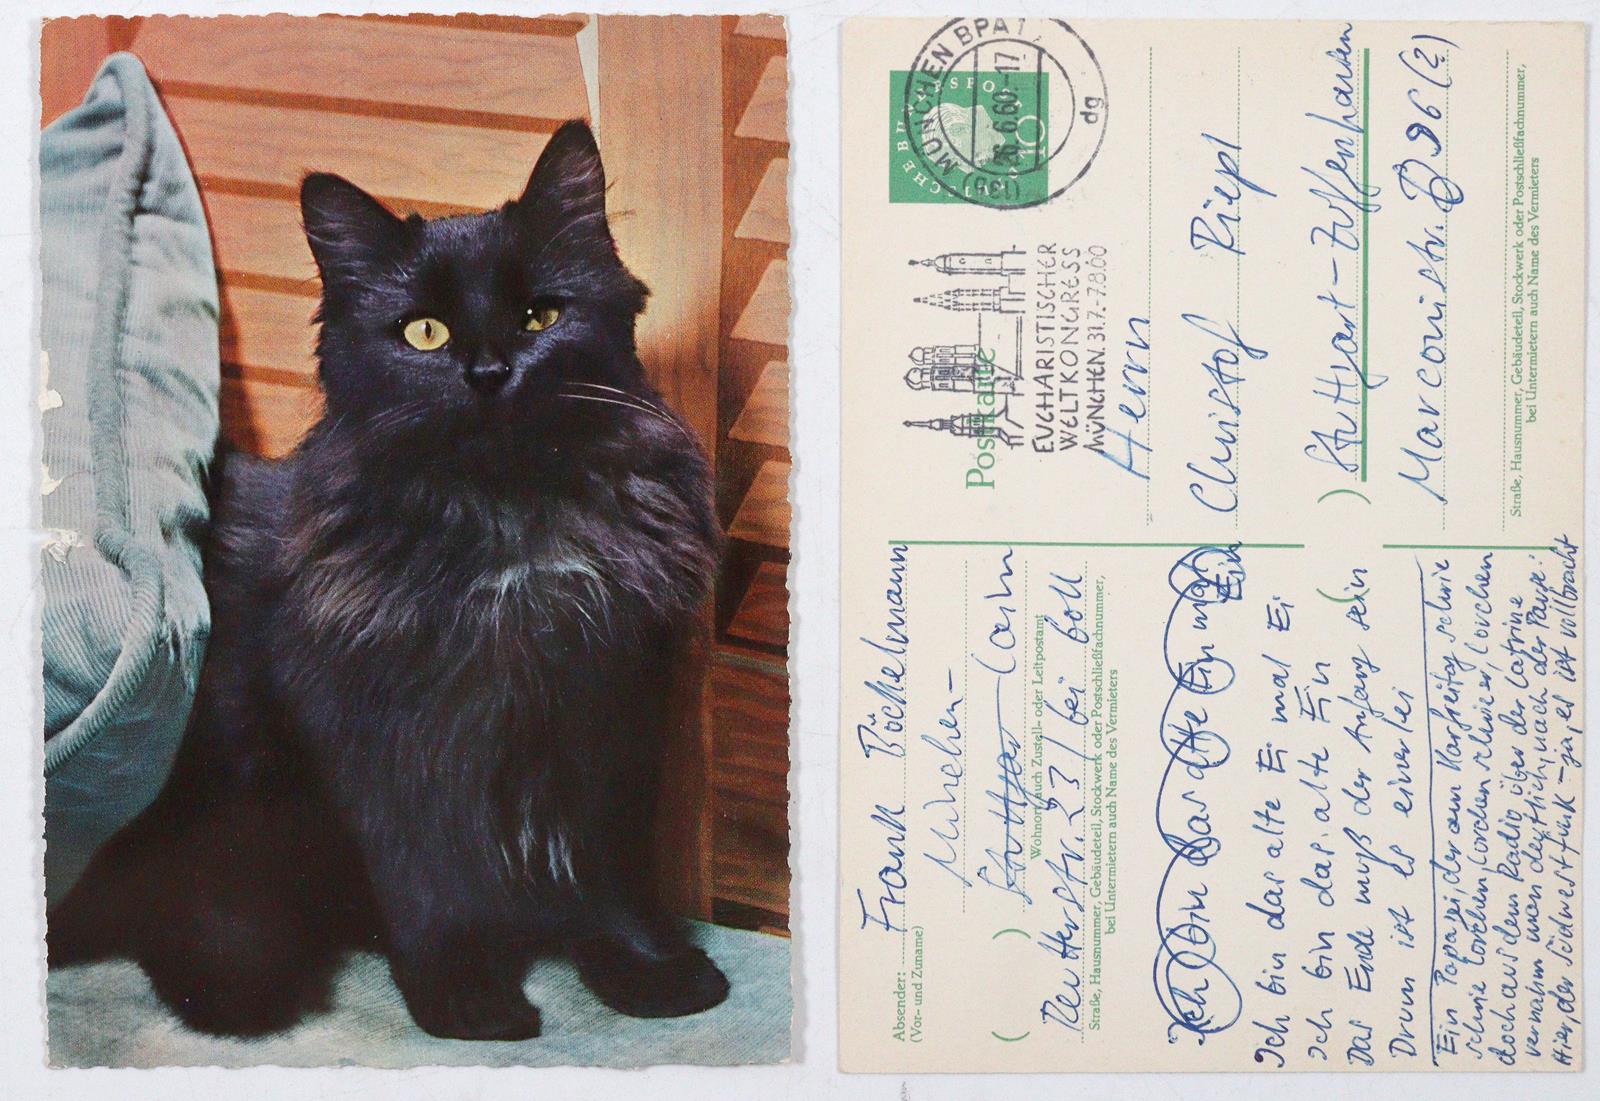 Absender: Frank Böckelmann
(Vor- und Zuname)
München-
Stuttgart Laim
Wohnort, auch Zustell- oder Leitpostamt
( ) Reutterstr. 23 / bei Boll
Straße, Hausnummer, Gebäudeteil, Stockwerk oder Postschließfachnummer,
bei Untermietern auch Name des Vermieters
Ich bin das alte Ein mal
Ein
Ich bin das alte Ei mal Ei
Ich bin das alte Ein
Das Ende muß der Anfang sein
Drum ist es einerlei
Ein Papa sei, der am Karfreitag schrie
schrie Lorchen, Lorchen schrie er, Lorchen
doch aus dem Radio über der Latrine
vernahm man deutlich, nach der Pause:
Hier, der Südwestfunk – ja, es ist vollbracht
DEUTSCHE BUNDESPOST
10
MÜNCHEN BPA 1
26.6.60.-17
dg
EUCHARISTISCHER
WELTKONGRESS
MÜNCHEN. 31.7.-7.8.60
Postkarte
Herrn
Christof Riepl
) Stuttgart-Zuffenhausen
Marconistr. B 96 (2)
Straße, Hausnummer, Gebäudeteil, Stockwerk oder Postschließfachnummer,
bei Untermietern auch Name des Vermieters